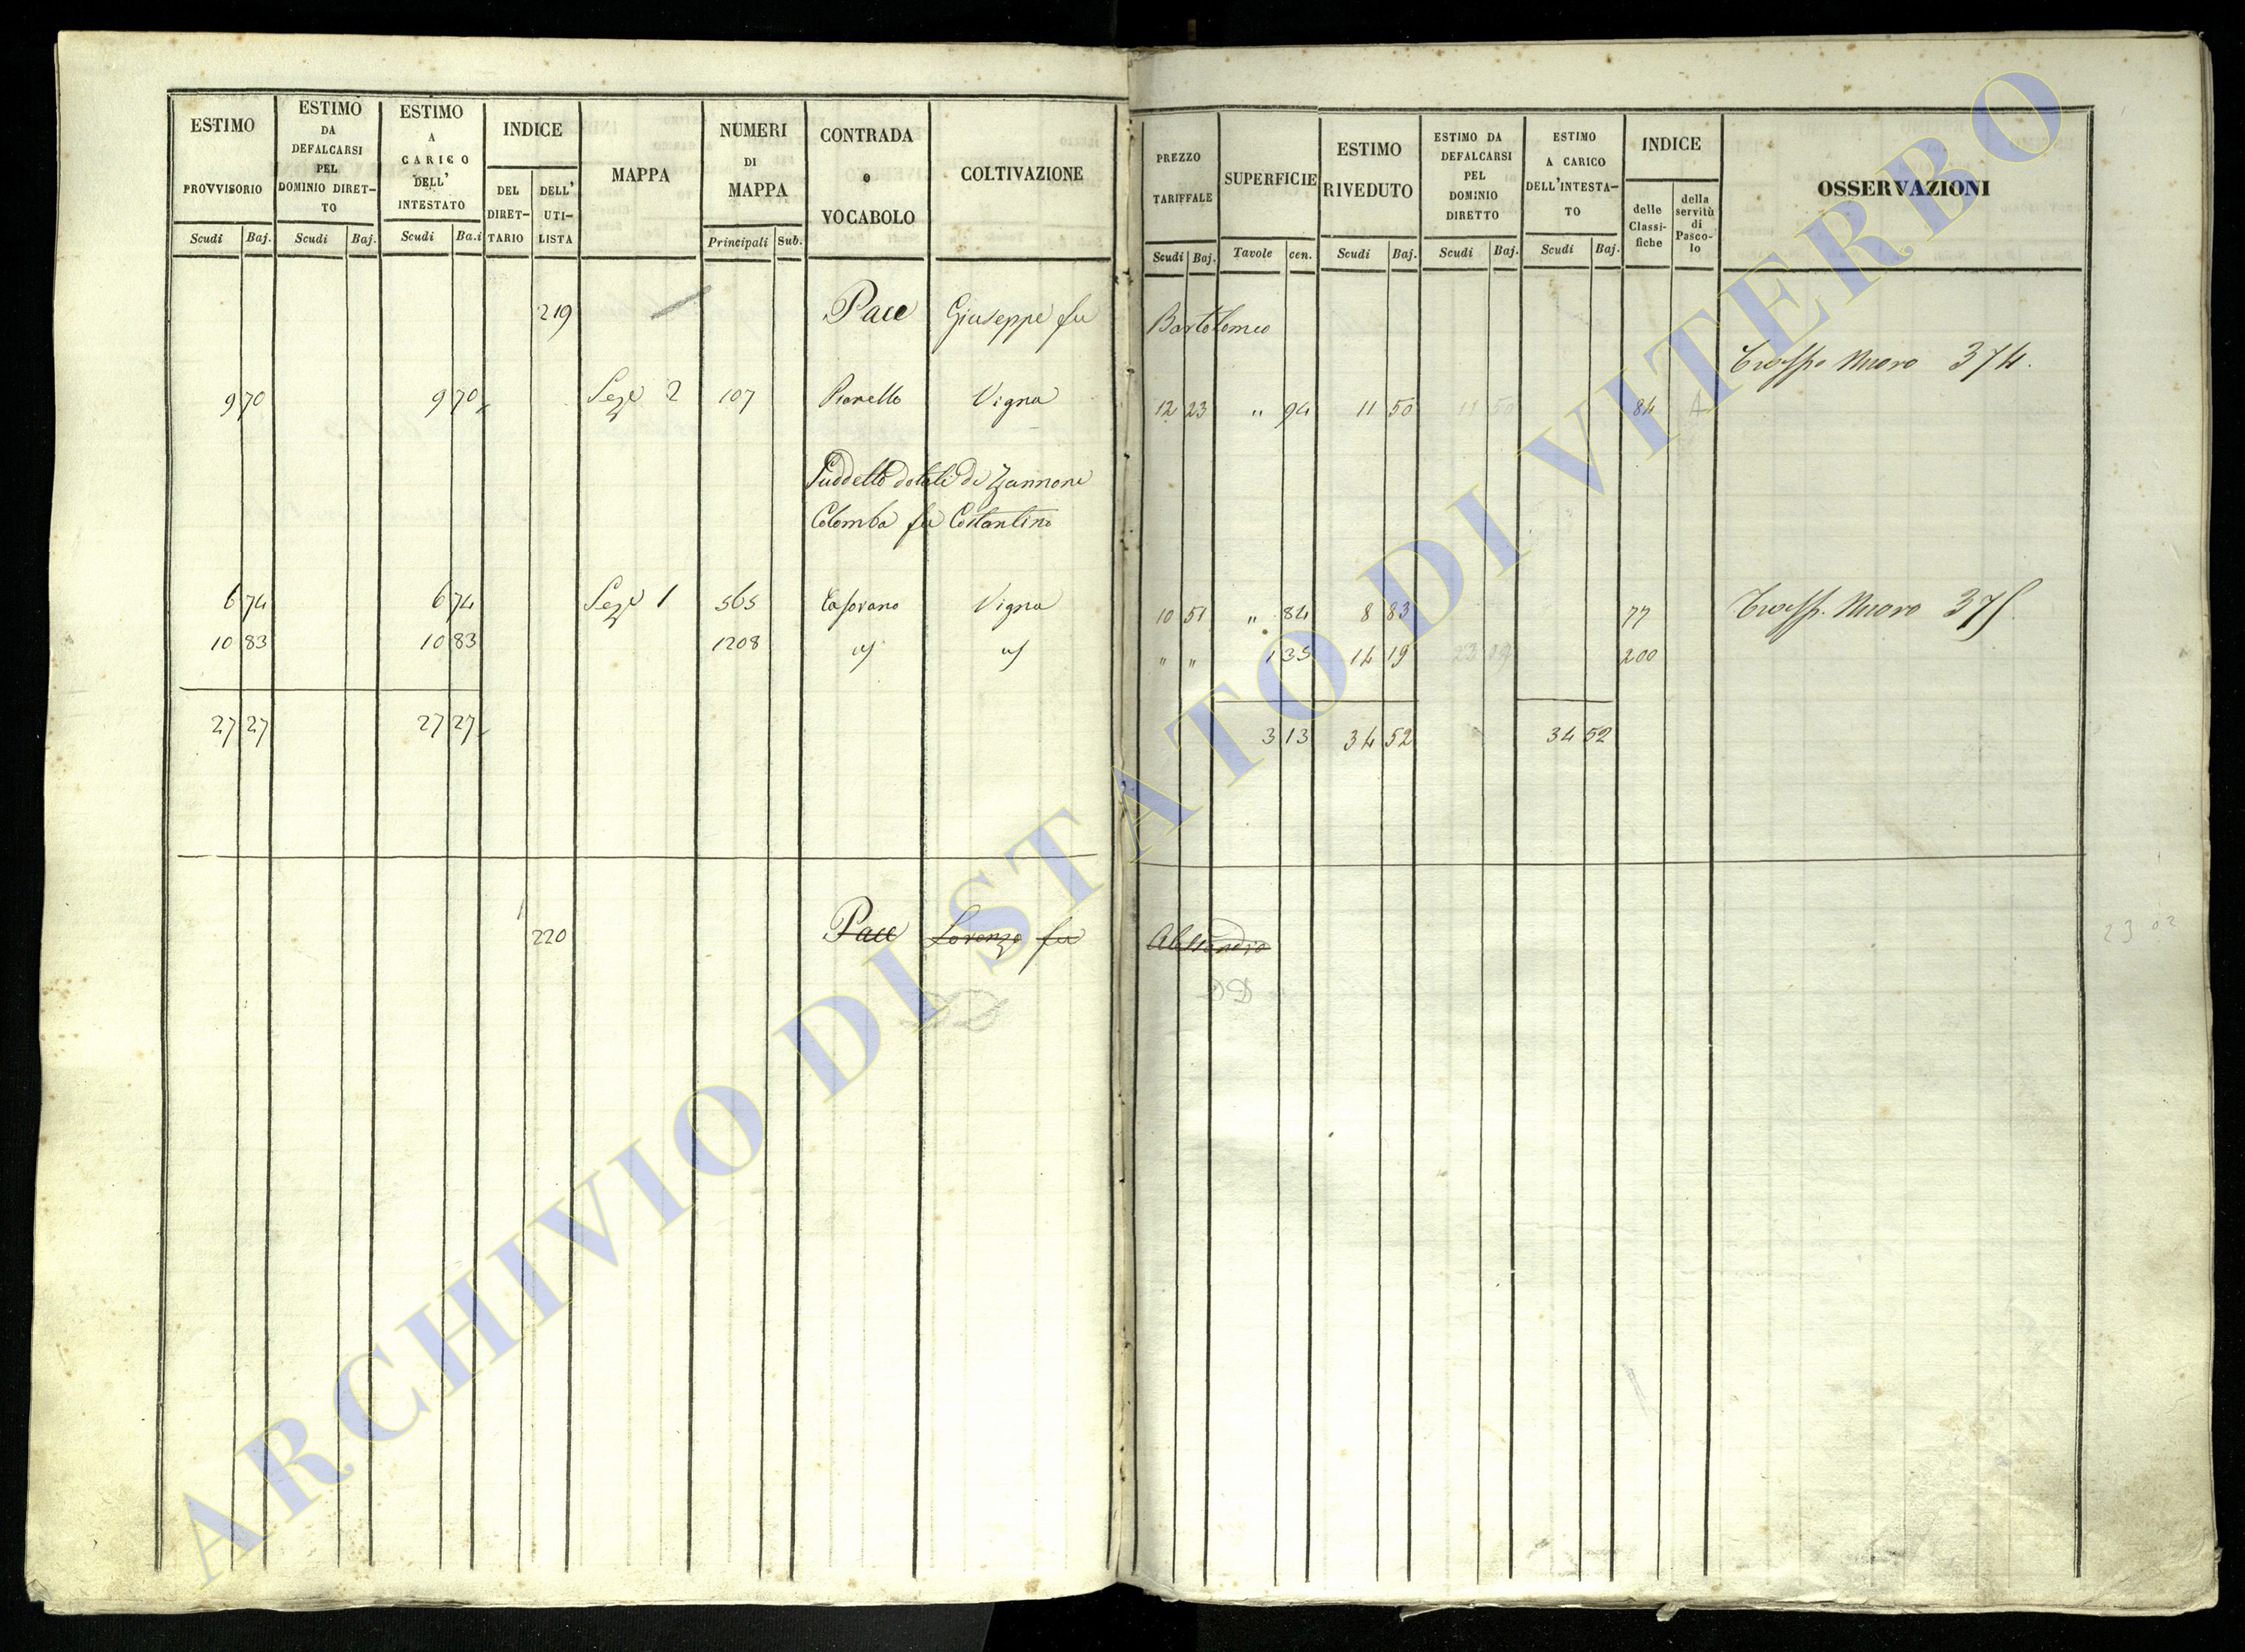 ESTIMO PROVVISORIO
ESTIMO DA DEFALCARSI PEL DOMINIO DIRETTO
ESTIMO A CARICO DELL' INTESTATO
INDICE
DEL DIRETTARIO
DELL' UTILISTA
MAPPA
NUMERI DI MAPPA
CONTRADA e VOCABOLO
COLTIVAZIONE
PREZZO TARIFFALE
SUPERFICIE
ESTIMO RIVEDUTO
ESTIMO DA DEFALCARSI PEL DOMINIO DIRETTO
ESTIMO A CARICO DELL'INTESTATO
INDICE
delle Classifiche
della servitù di Pascolo
OSSERVAZIONI
Scudi Baj. Scudi Baj. Scudi Ba.i Principali Sub. Scudi Baj. Tavole cen. Scudi Baj. Scudi Baj. Scudi Baj.
219 Pace Giuseppe fu Bartolomeo
Nuovo 374.
9 70 9 70 Sezе 2 107 Pianello Vigna 12 23 " 94 11 50 11 50 84 A
Suddetto dotale di Zannone
Colomba fu Costantino
6 74 6 74 Sezе 1 565 Vigna 10 51 " 84 8 83 77 Nuovo 375
10 83 10 83 1208 " " 1 35 14 19 200
27 27 27 27 3 13 34 52 34 52
220 Pace Lorenzo fu Alessandro
23 02
ARCHIVIO DI STATO DI VITERBO